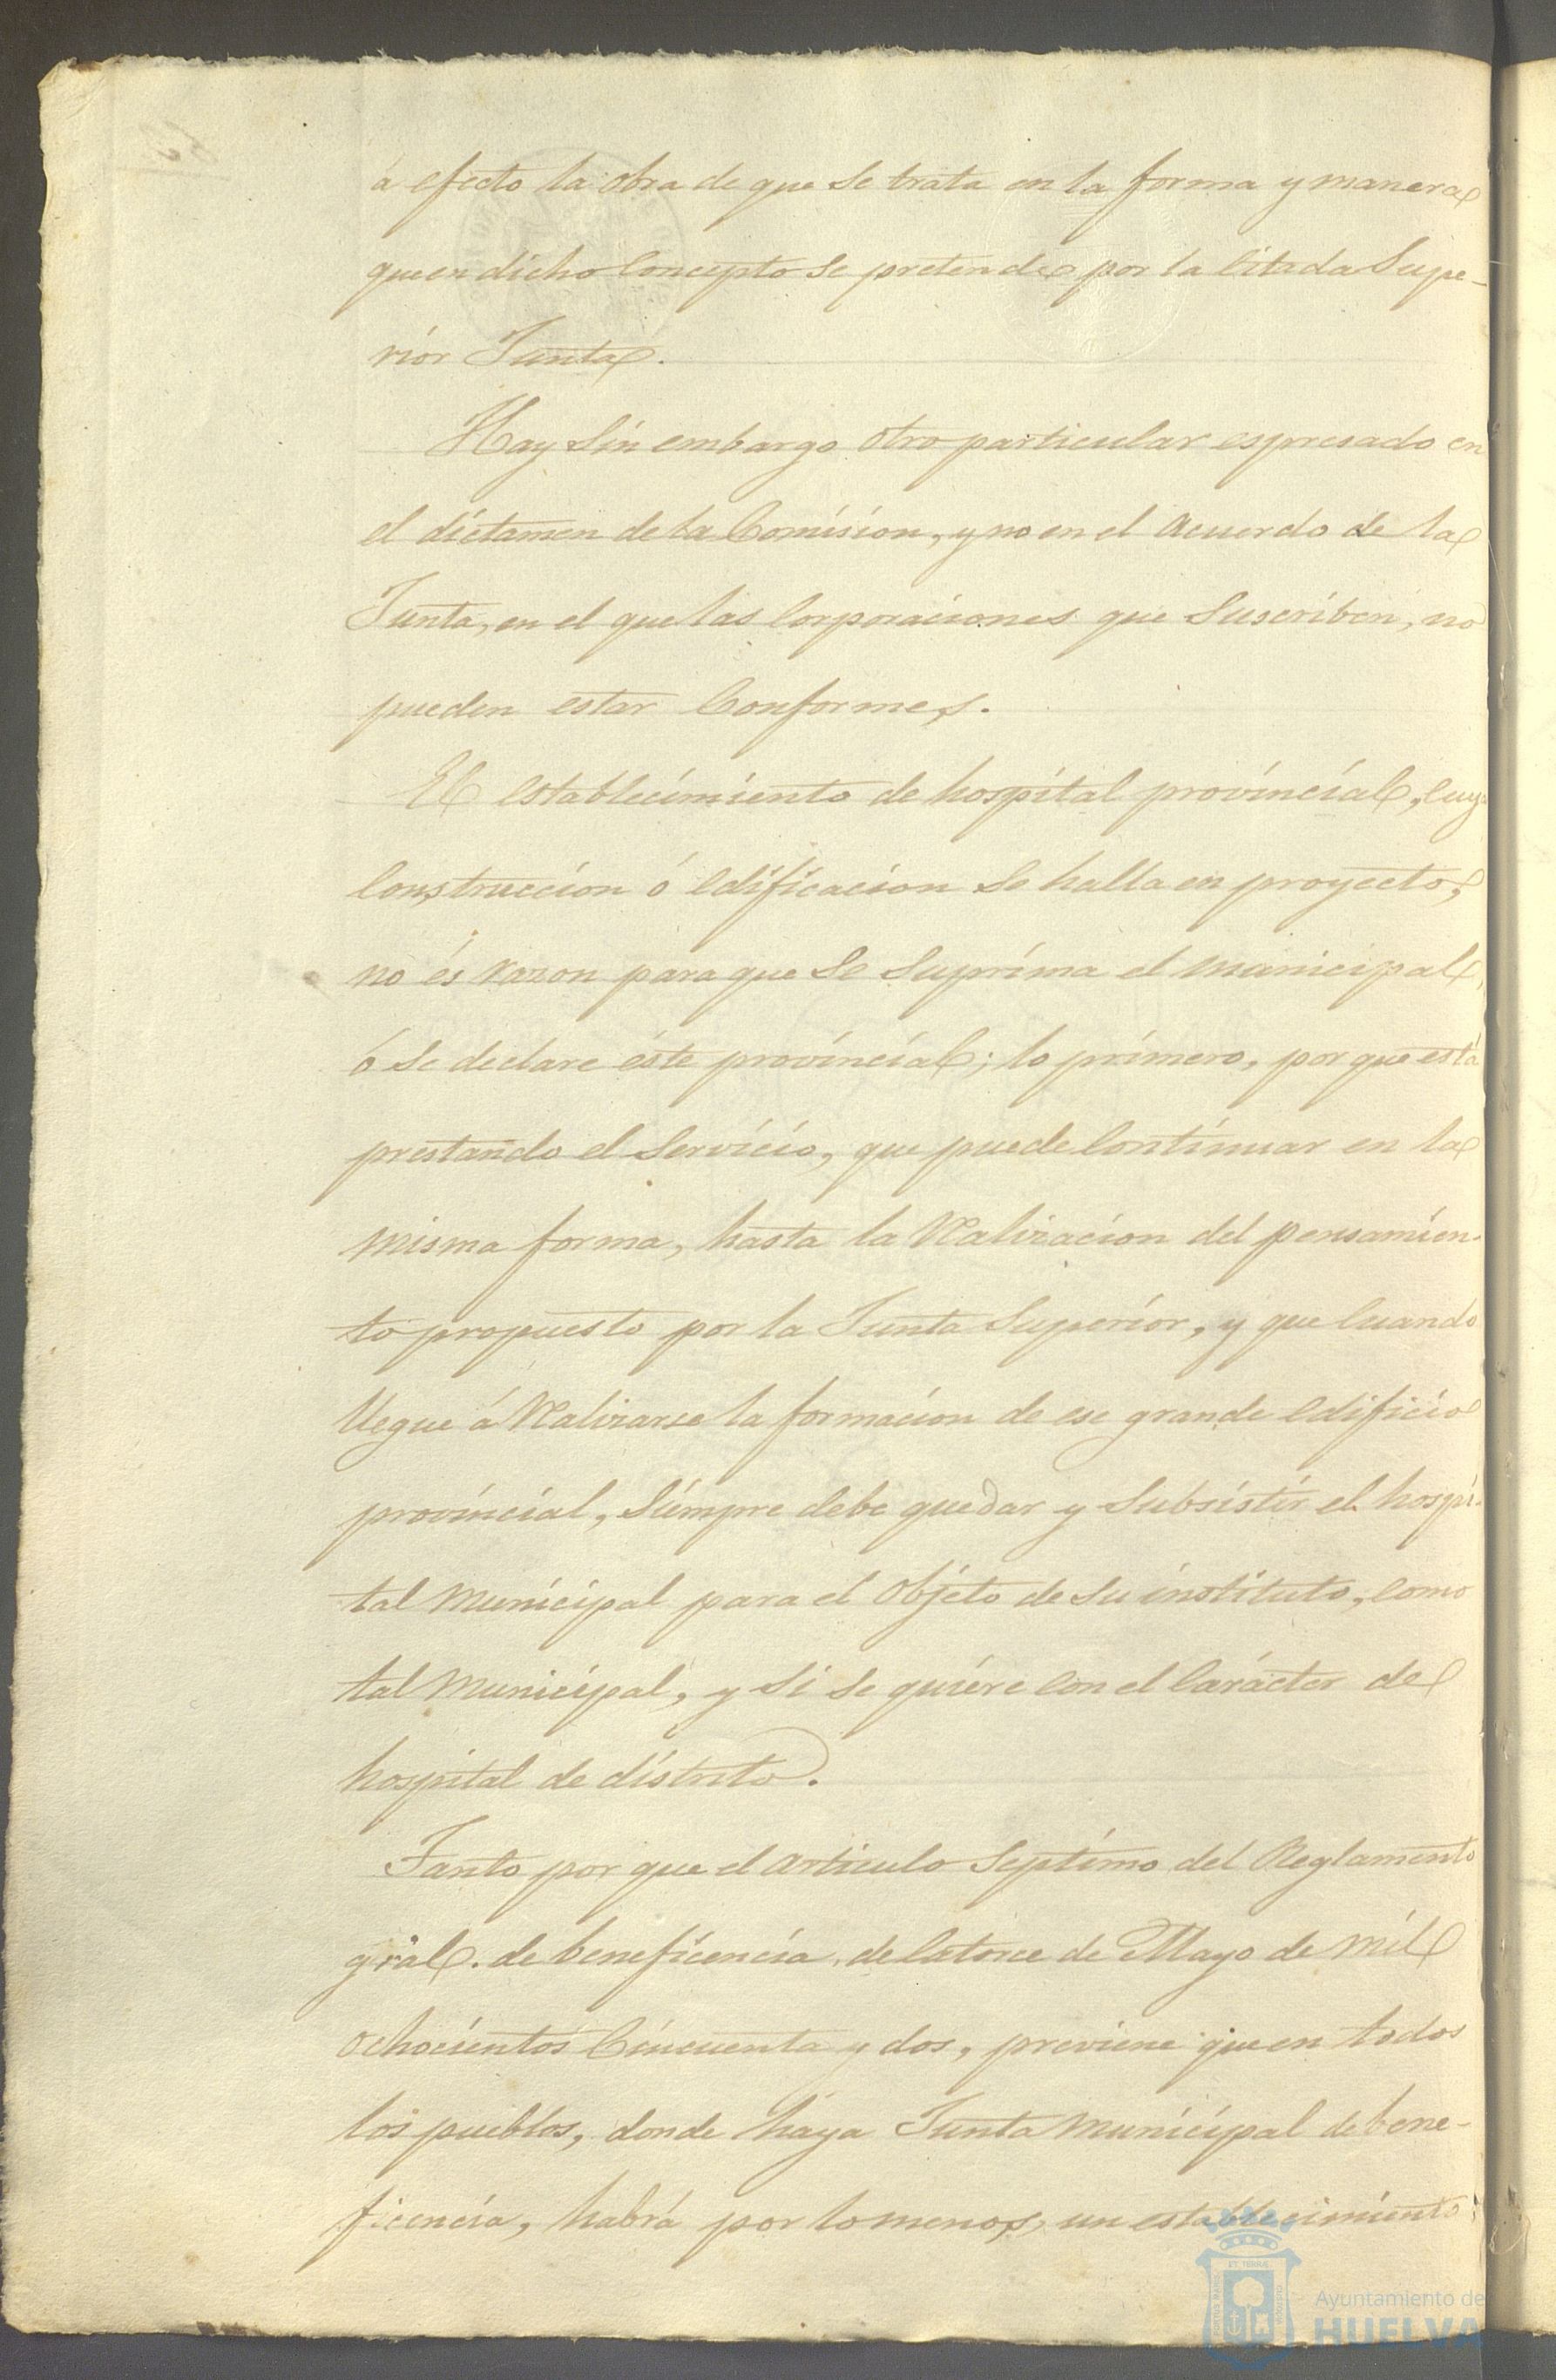 á efecto la obra de que se trata en la forma y manera
que en dicho concepto se pretende por la citada Supe-
rior Junta.
Hay sin embargo otro particular espresado en
el dictamen de la Comision, y no en el acuerdo de la
Junta, en el que las corporaciones que suscriben, no
pueden estar conformes.
El establecimiento de hospital provincial, cuya
construccion ó edificacion se halla en proyecto,
no és razon para que se suprima el municipal,
ó se declare éste provincial; lo primero, por que está
prestando el servicio, que puede continuar en la
misma forma, hasta la realizacion del pensamien-
to propuesto por la Junta Superior, y que cuando
llegue á realizarse la formacion de ese grande edificio
provincial, siempre debe quedar y subsistir el hospi-
tal municipal para el objeto de su instituto, como
tal municipal, y si se quiere con el carácter de
hospital de distrito.
Tanto por que el articulo septimo del Reglamento
gral. de beneficencia, de catorce de Mayo de mil
ochocientos cincuenta y dos, previene que en todos
los pueblos, donde haya Junta municipal de bene-
ficencia, habrá por lo menos, un establecimiento
Ayuntamiento de
HUELVA